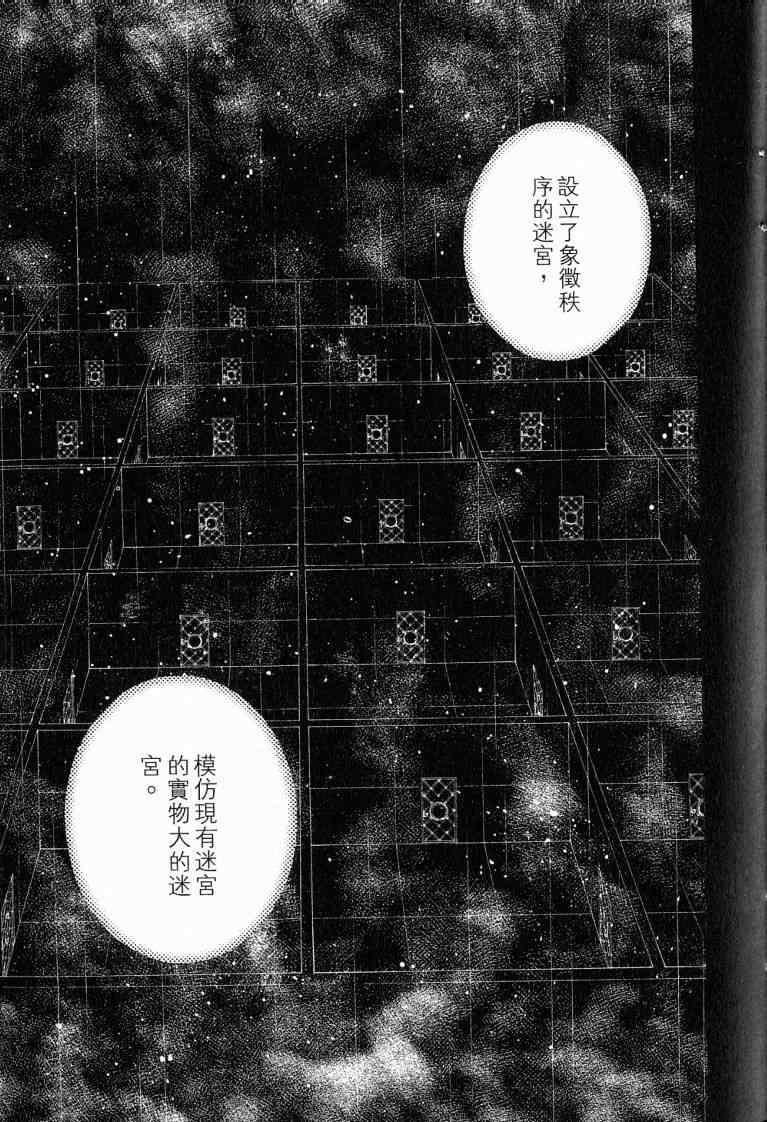 設立了象徵秩
序的迷宮，
模仿現有迷宮
的實物大的迷
宮。